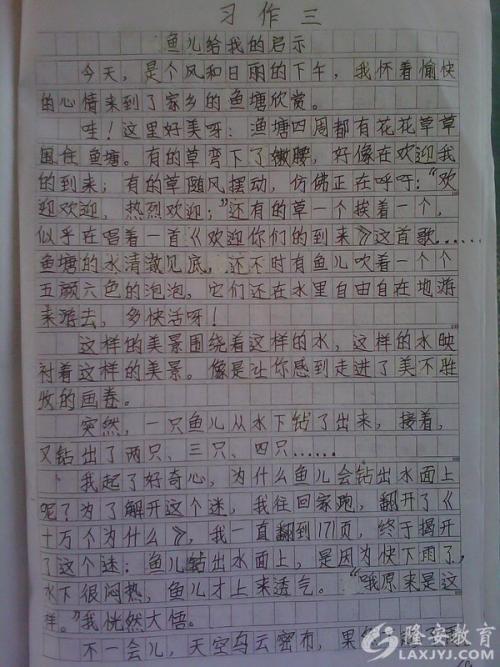 习作三
鱼儿给我的启示
今天，是个风和日雨的下午，我怀着愉快
的心情来到了家乡的鱼塘欣赏。
哇！这里好美呀：渔塘四周都有花花草草
围住鱼塘。有的草弯下了嫩腰，好像在欢迎我
的到来；有的草随风摆动，仿佛正在呼吁：“欢
迎欢迎，热烈欢迎；”还有的草一个挨着一个，
似乎在唱着一首《欢迎你们的到来》这首歌……
鱼塘的水清澈见底，还不时有鱼儿吹着一个个
五颜六色的泡泡，它们还在水里自由自在地游
来游去，多快活呀！
这样的美景围绕着这样的水，这样的水映
衬着这样的美景。像是让你感到走进了美不胜
收的画卷。
突然，一只鱼儿从水下钻了出来，接着，
又钻出了两只、三只、四只……
我起了好奇心，为什么鱼儿会钻出水面上
呢？为了解开这个迷，我往回家跑，翻开了《
十万个为什么》，我一直翻到171页，终于揭开
了这个迷：鱼儿钻出水面上，是因为快下雨了，
水下很闷热，鱼儿才上来透气。“哦原来是这
样。”我恍然大悟。
不一会儿，天空乌云密布，果
隆安教育
LAXJYJ.COM